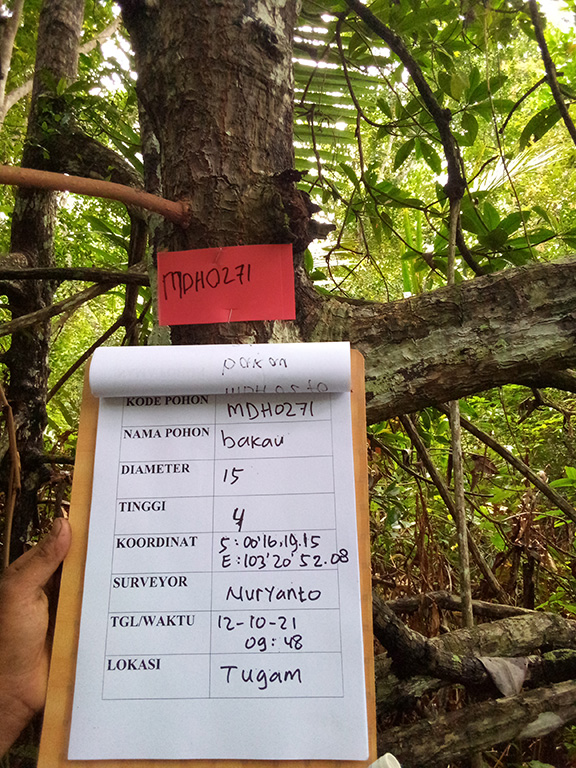 MDH0271
pakan
KODE POHON MDH0271
NAMA POHON bakau
DIAMETER 15
TINGGI 4
KOORDINAT S:00°16.19.15
E:103°20'52.08
SURVEYOR Nuryanto
TGL/WAKTU 12-10-21
09:48
LOKASI Tugam